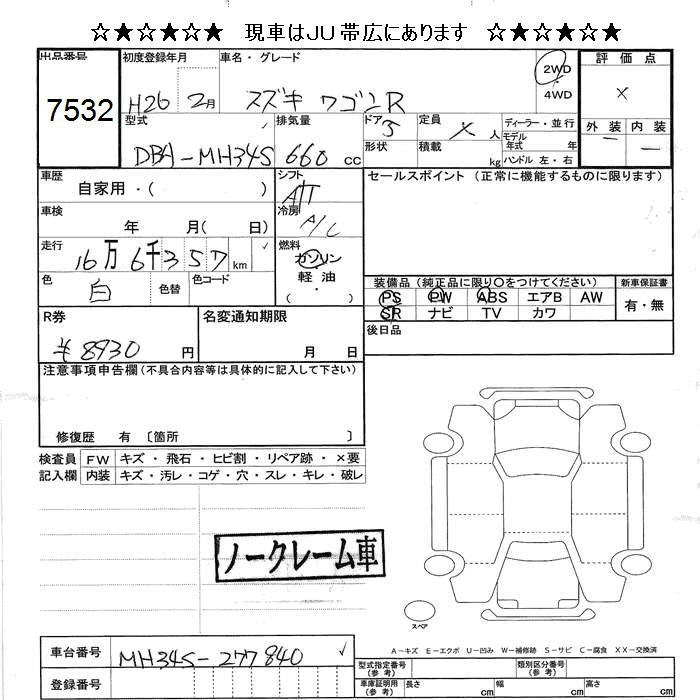 ☆★☆★☆★ 現車はJU帯広にあります ☆★☆★☆★
出品番号 初度登録年月 車名・グレード 2WD 評価点
7532 H26 2月 スズキ ワゴンR ・ 4WD ×
型式 排気量 ドア 定員 ディーラー・並行 外装 内装
DBA-MH34S 660 cc 5 人 モデル年式 年 — —
形状 積載 kg ハンドル 左・右
車歴 シフト セールスポイント (正常に機能するものに限ります)
自家用・( ) A/T
車検 冷房
年 月( 日) A/C
走行 燃料
16万6千357 km ガソリン
色 色替 色コード 軽油
白 ・ ( ) 装備品 (純正品に限り○をつけてください) 新車保証書
PS PW ABS エアB AW 有・無
R券 名変通知期限 SR ナビ TV カワ
¥8930 円 月 日 後日品
注意事項申告欄 (不具合内容等は具体的に記入して下さい)
修復歴 有 〔箇所 〕
検査員 FW キズ・飛石・ヒビ割・リペア跡・×要
記入欄 内装 キズ・汚レ・コゲ・穴・スレ・キレ・破レ
ノークレーム車
スペア
A-キズ E-エクボ U-凹み W-補修跡 S-サビ C-腐食 XX-交換済
車台番号 MH34S-277840
型式指定番号 (参考) 類別区分番号 (参考)
登録番号 車庫証明用 (参考) 長さ cm 幅 cm 高さ cm